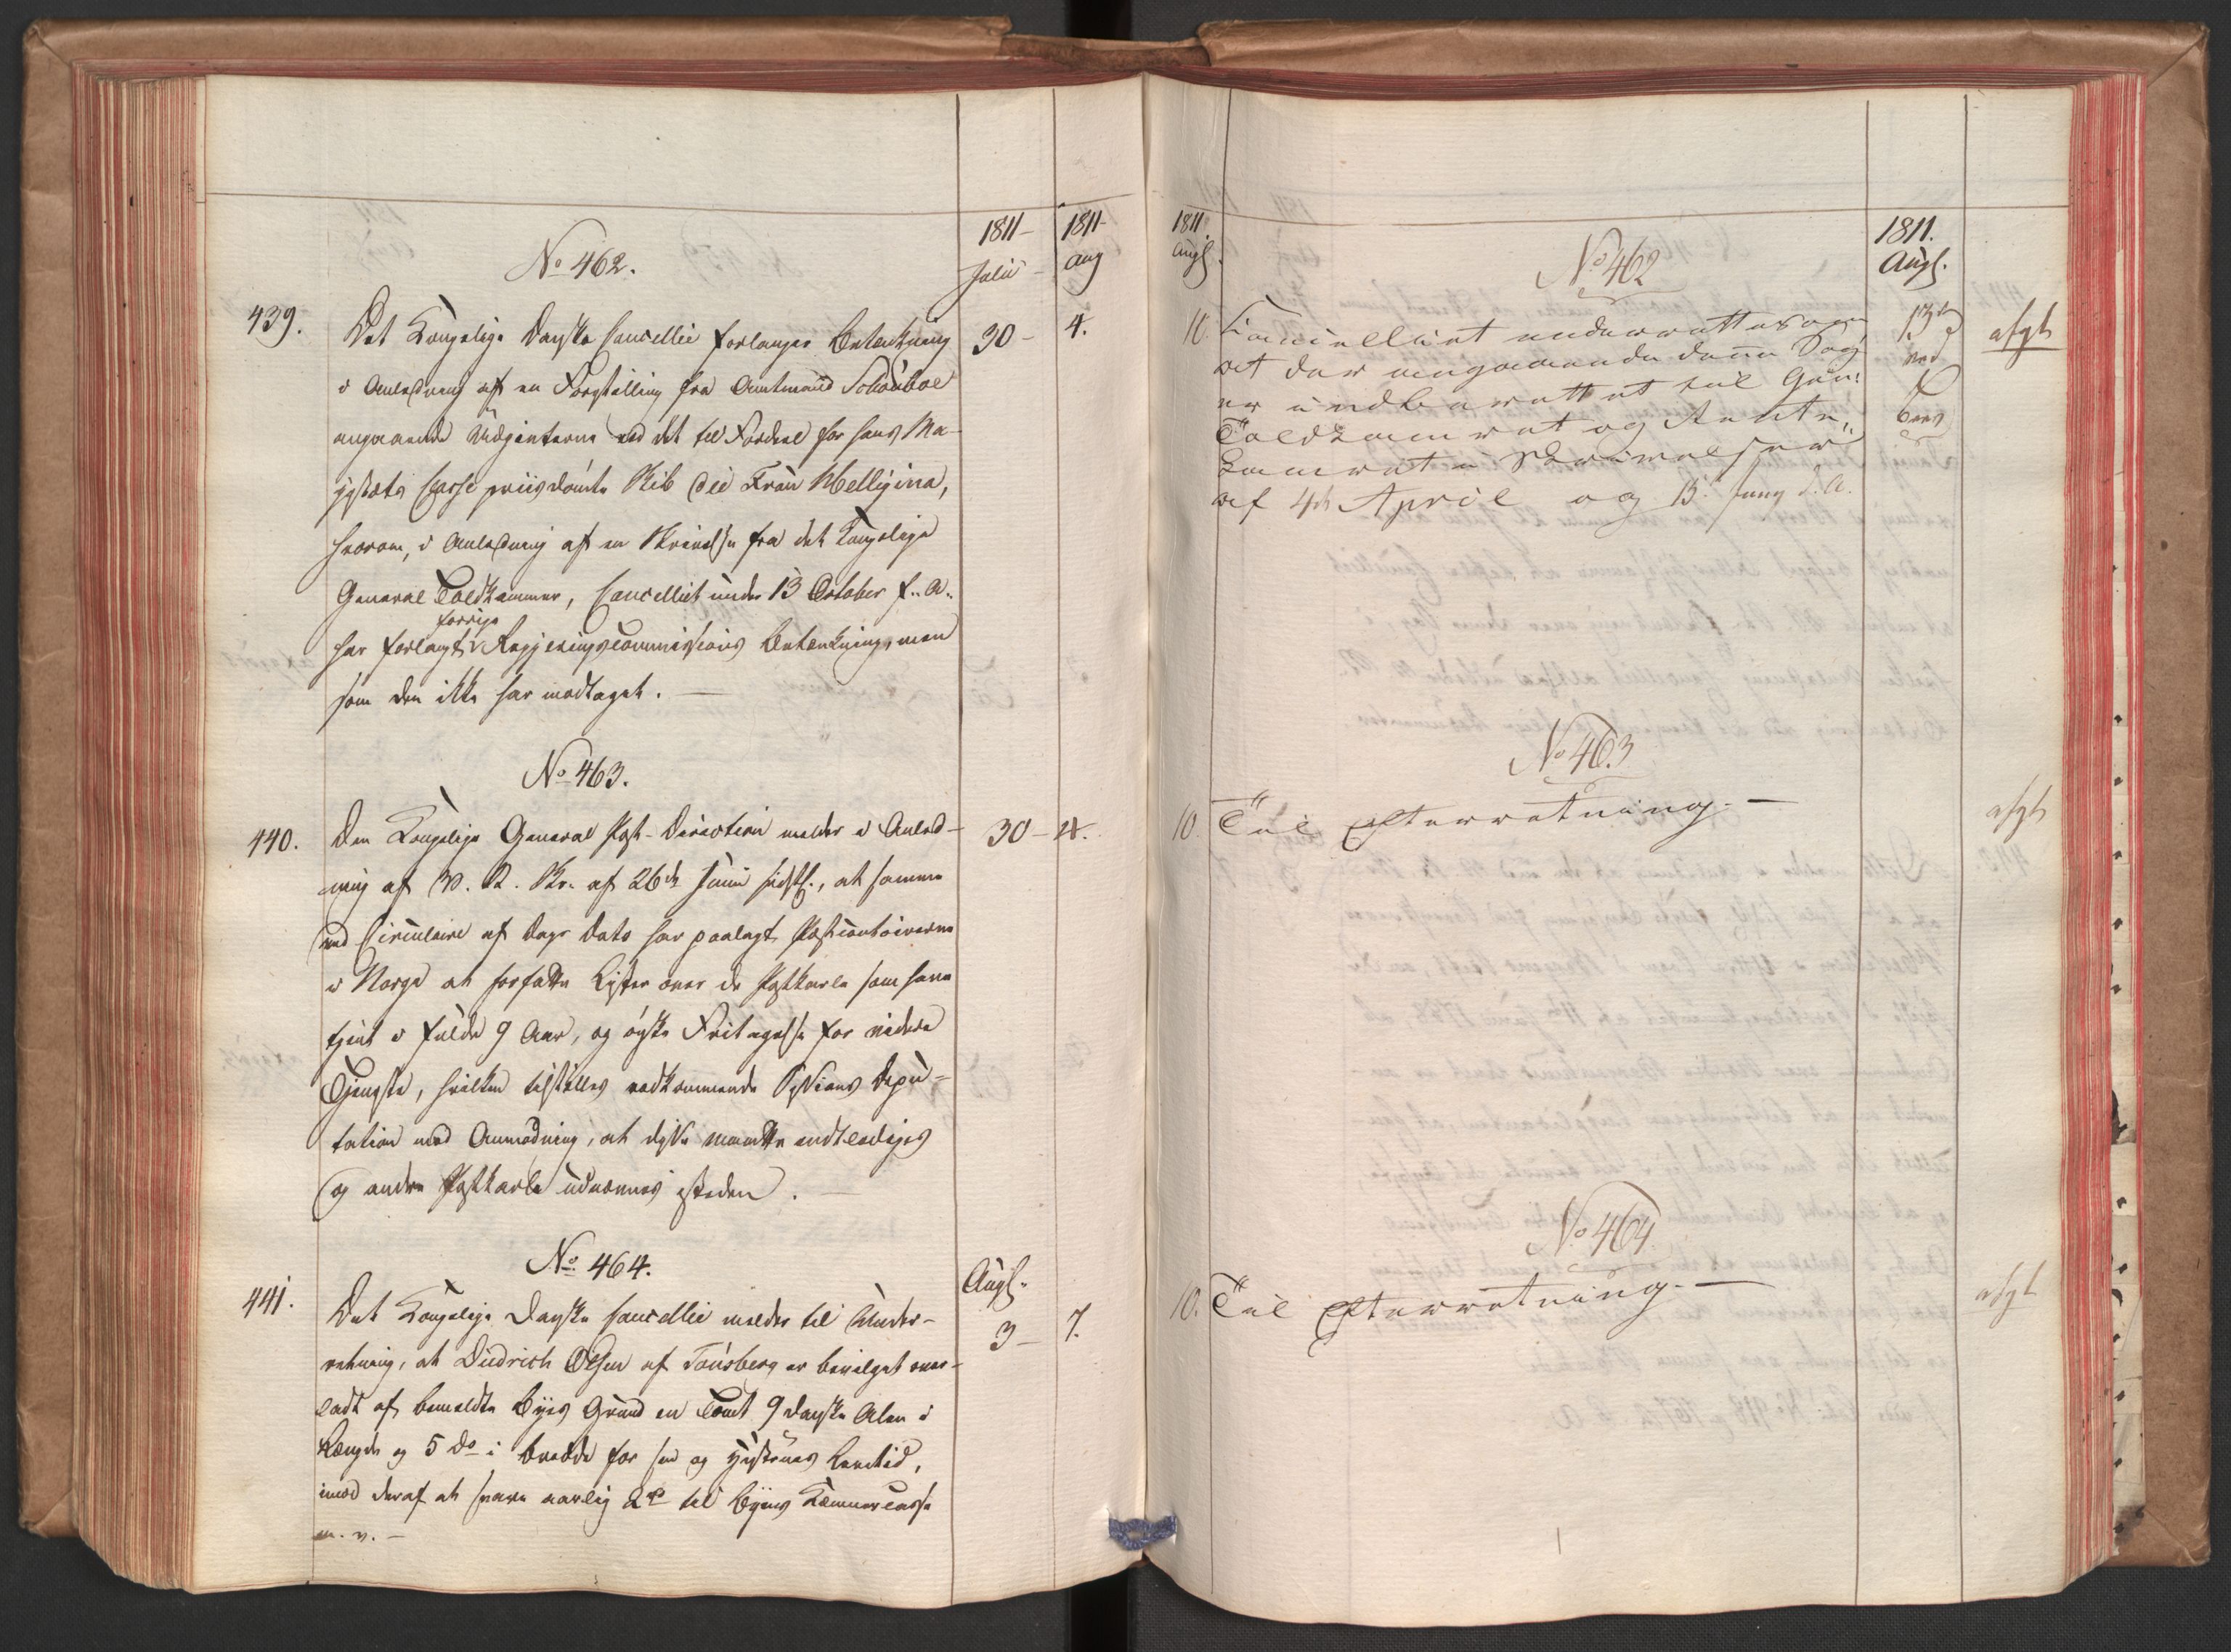 1811
Julii
1811
Aug
No 462.
439.
Det Kongelige Danske Cancellie forlanger Betænkning
i Anledning af en Forestilling fra Amtmand Schouboe
angaaende Udgivterne ved det til Fordeel for Hans Ma-
jestæts Casse priisdømte Skib Die Frau Melligina,
hvorom, i Anledning af en Skrivelse fra det Kongelige
General Toldkammer, Cancelliet under 13 October f. A.
har forlangt forrige Regjeringscommissions Betænkning, men
som den ikke har modtaget. —
30 —
4.
No 463.
440.
Den Kongelige General Post-Direction melder i Anled-
ning af V. R. Skr. af 26de Junii sidstl., at samme
ved Circulaire af Dags Dato har paalagt Postcontoirerne
i Norge at forfatte Lister over de Postkarle som have
tjent i fulde 9 Aar, og ønske Fritagelse for videre
Tjeneste, hvilken tilstilles vedkommende Sessions Depu-
tation med Anmodning, at disse maatte entlediges
og andre Postkarle udnævnes isteden. —
30 —
4.
No 464.
441.
Det Kongelige Danske Cancellie melder til Under-
retning, at Diedrich Olsen af Tønsberg er bevilget over-
ladt af bemeldte Byes Grund en Tomt 9 danske Alen i
Længde og 5 do i Bredde for sin og Hustrues Levetid,
imod deraf at svare aarlig 2 rd til Byens Kæmnercasse
m. v. —
Augs.
3 —
7.
1811
Augs.
No 462
10.
Cancelliet underrettes om,
at det angaaende denne Sag
er indberettet til Gen:
Toldkammeret og Rente-
kammeret i Skrivelser
af 4de April og 13 Juny d. A.
1811.
Augs.
13de
ved
afgt
No 463
10.
Til Efterretning. —
afgt
No 464.
10.
Til Efterretning. —
afgt